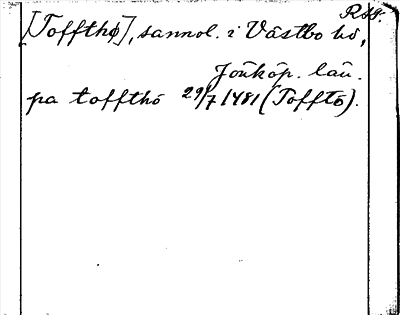 RAp.
[Toffthø], sannol. i Västbo hd,
Jönköp. län.
pa toffthó 29/7 1481 (Tofftō).